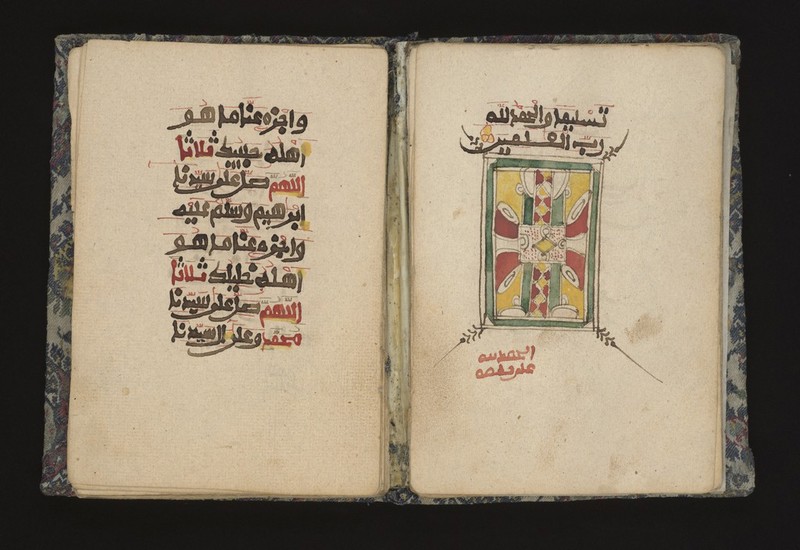 تسليما والحمد لله
رب العلمين
الحمد لله
على نعمه
واجزه عنا ما هو
اهله حبيبك ثلاثا
اللهم صل على سيدنا
ابرهيم وسلم عليه
واجزه عنا ما هو
اهله خليلك ثلاثا
اللهم صل على سيدنا
محمد وعلى ال سيدنا